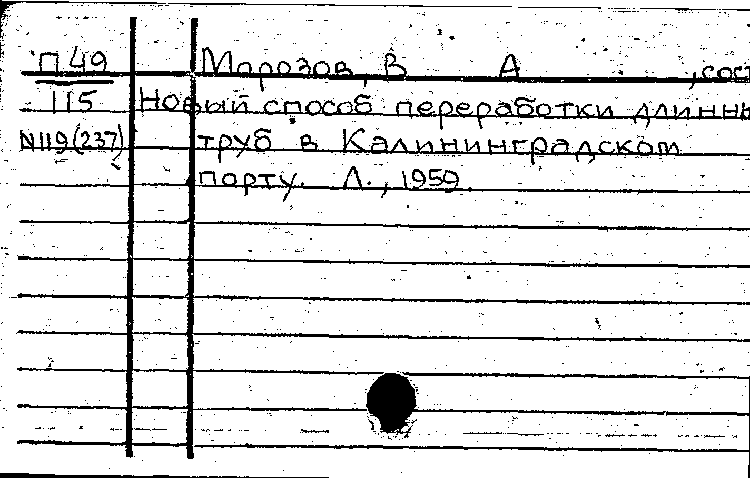 П 49
115
N119(237)
Морозов, В А , сост
Новый способ переработки длинны
труб в Калининградском
порту. Л., 1959.